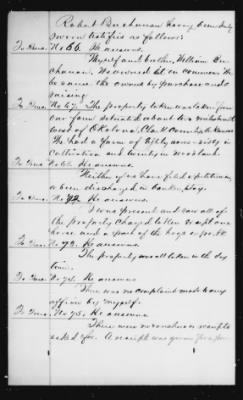 Robert Buchanan having been duly
sworn testifies as follows:
To Ques. No 66. He answers.
Myself and brother, William Bu-
chanan. We owned it in common. We
became the owners by purchase and
raising.
To Ques. No 67. The property was taken from
our farm situated about two miles
west of Okolona, Clark County Arkansas
We had a farm of fifty acres sixty in
cultivation and twenty in woodland.
To Ques. No 68. He answers.
Neither of us have filed a petition
or been discharged in Bankruptcy.
To Ques. No 72. He answers.
I was present and saw all of
the property charged taken except one
horse and a part of the hogs or pork
To Ques. No 73. He answers
The property was all taken in the day
time.
To Ques. No 74. He answers
There was no complaint made to any
officer by myself.
To Ques. No 75. He answers
There were no vouchers or receipts
asked for. A receipt was given for